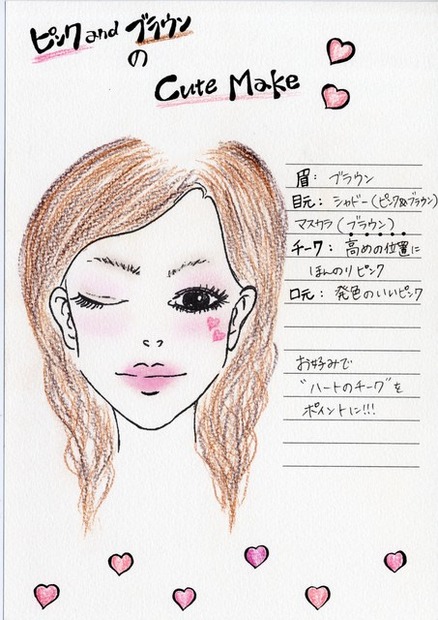 ピンク and ブラウン
の
Cute Make
眉: ブラウン
目元: シャドー(ピンク&ブラウン)
マスカラ(ブラウン)
チーク: 高めの位置に
ほんのりピンク
口元: 発色のいいピンク
お好みで
"ハートのチーク"を
ポイントに!!!